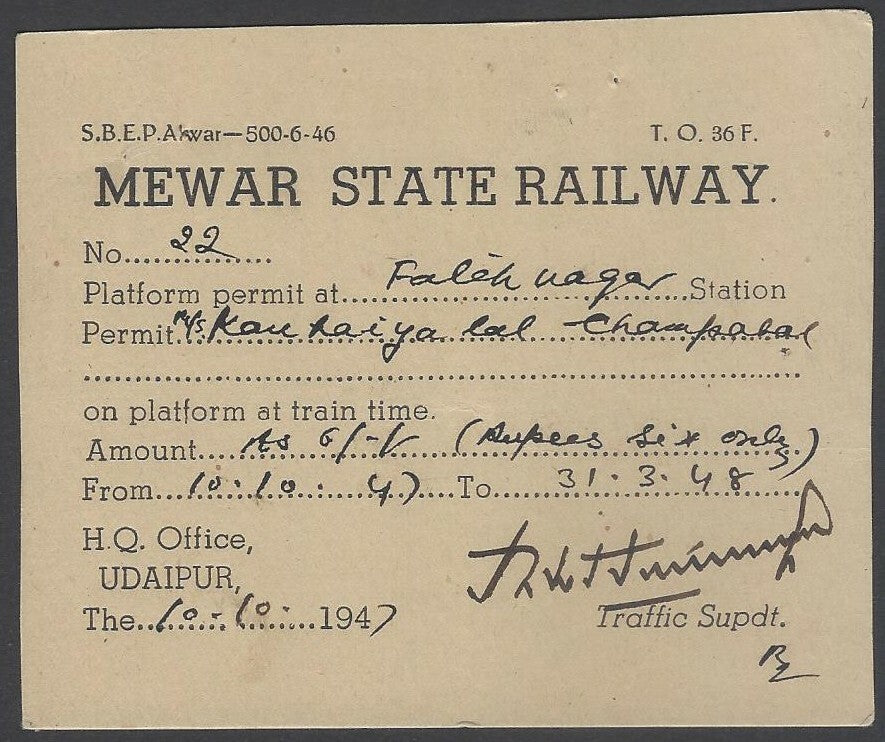 S.B.E.P.Alwar—500-6-46 T. O. 36 F.
MEWAR STATE RAILWAY.
No. 22
Platform permit at Fateh nagar Station
Permit M/s Kanhaiya lal Champalal
on platform at train time.
Amount Rs 6/-/- (Rupees six only)
From 10.10.47 To 31.3.48
H.Q. Office,
UDAIPUR,
The 10-10- 1947
Traffic Supdt.